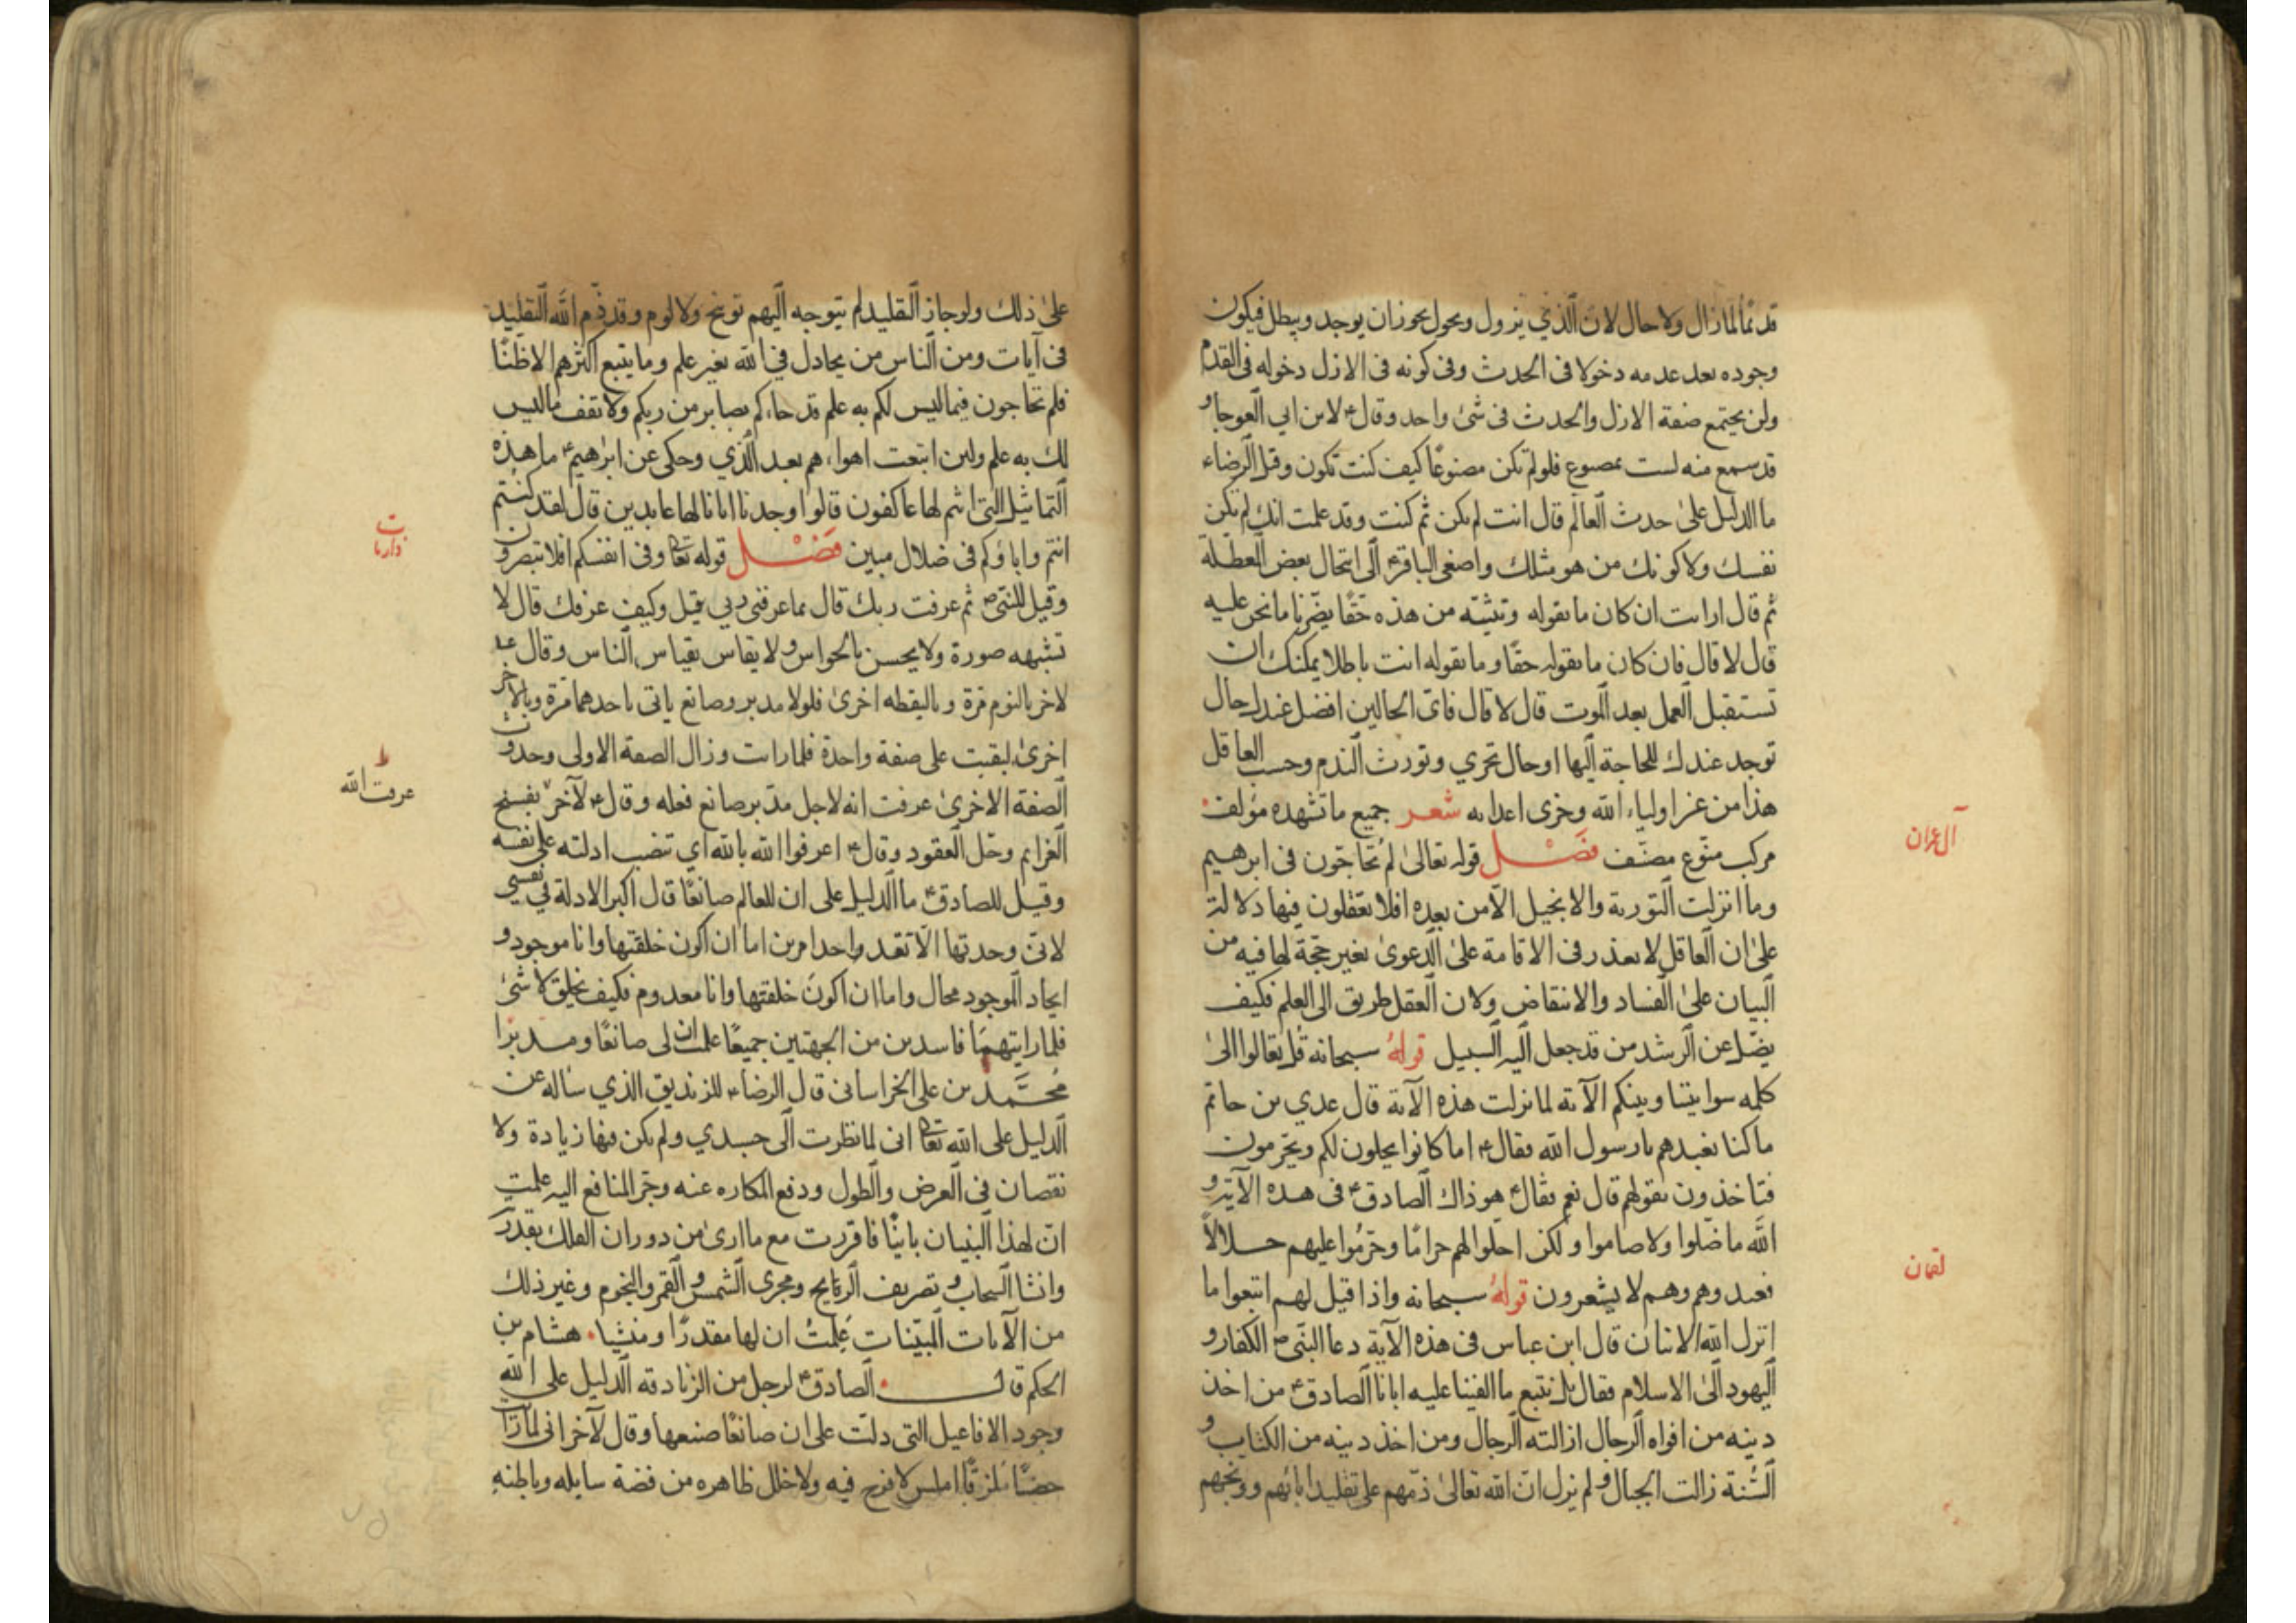 قديمًا لما زال ولا حال لان الذي يزول ويحول يجوز ان يوجد ويبطل فيكون
وجوده بعد عدمه دخولا في الحدث وفي كونه في الازل دخوله في القدم
ولن يجتمع صفة الازل والحدث في شئ واحد وقال ع لابن ابي العوجاء و
قد سمع منه لست بمصنوع فلو لم تكن مصنوعًا كيف كنت تكون وقيل للرضاء
ما الدليل على حدث العالم قال انت لم تكن ثم كنت وقد علمت انك لم تكن
نفسك ولا كونك من هو مثلك واصغى الباقر ع الى انتحال بعض المعطلة
ثم قال ارايت ان كان ما تقوله وتثبته من هذه حقًا يضرنا ما نحن عليه
قال لا قال فان كان ما نقوله حقًا وما تقوله انت باطلا يمكنك ان
تستقبل العمل بعد الموت قال لا قال فاي الحالين افضل عندك حال
توجد عندك للحاجة اليها او حال تخزي وتورث الندم وحسب العاقل
هذا من عز اولياء الله وخزى اعدايه شعر جميع ما تشهده مؤلف
مركب منوع مصنف فصل قوله تعالى لم تحاجون في ابرهيم
وما انزلت التورية والانجيل الا من بعده افلا تعقلون فيها دلالة
على ان العاقل لا يعذر في الاقامة على الدعوى بغير حجة لما فيه من
البيان على الفساد والانتقاض ولان العقل طريق الى العلم فكيف
يضل عن الرشد من قد جعل اليه السبيل قوله سبحانه قل تعالوا الى
كلمه سوا بيننا وبينكم الآية لما نزلت هذه الآية قال عدي بن حاتم
ما كنا نعبدهم يا رسول الله فقال ع اما كانوا يحلون لكم ويحرمون
فتاخذون بقولهم قال نعم فقال ع هو ذاك الصادق ع في هذه الآية و
الله ما صلوا ولا صاموا ولكن احلوا لهم حرامًا وحرموا عليهم حلالاً
فعبدوهم وهم لا يشعرون قوله سبحانه واذا قيل لهم اتبعوا ما
انزل الله الاتيان قال ابن عباس في هذه الآية دعا النبي ص الكفار و
اليهود الى الاسلام فقال بل نتبع ما الفينا عليه ابانا الصادق ع من اخذ
دينه من افواه الرجال ازالته الرجال ومن اخذ دينه من الكتاب و
السنة زالت الجبال ولم يزل ان الله تعالى ذمهم على تقليد ابائهم ووبخهم
آل عمران
لقمان
على ذلك ولو جاز التقليد لم يتوجه اليهم توبيخ ولا لوم وقد ذم الله التقليد
في آيات ومن الناس من يجادل في الله بغير علم وما يتبع اكثرهم الا ظنًا
فلم تحاجون فيما ليس لكم به علم قد جاءكم بصاير من ربكم ولا تقف ما ليس
لك به علم ولئن اتبعت اهواءهم بعد الذي وحكى عن ابرهيم ع ما هذه
التماثيل التي انتم لها عاكفون قالوا وجدنا اباءنا لها عابدين قال لقد كنتم
انتم واباؤكم في ضلال مبين فصل قوله تعا وفي انفسكم افلا تبصرون
وقيل للنبي ص ثم عرفت ربك قال بما عرفني ربي قيل وكيف عرفك قال لا
تشبهه صورة ولا يحسن بالحواس ولا يقاس بقياس الناس وقال ع
لاخر بالنوم مرة وباليقظه اخرى فلولا مدبر وصانع ياتي باحدهما مرة وبالاخر
اخرى لبقيت على صفة واحدة فلما رايت وزال الصفة الاولى وحدوث
الصفة الاخرى عرفت انه لاجل مدبر صانع فعله وقال ع لآخر بفسخ
العزايم وحل العقود وقال ع اعرفوا الله بالله اي تنصب ادلته على نفسه
وقيل للصادق ع ما الدليل على ان للعالم صانعًا قال اكبر الادلة في نفسي
لاني وحدتها لا تعد واحد امرين اما ان اكون خلقتها وانا موجود و
ايجاد الموجود محال واما ان اكون خلقتها وانا معدوم فكيف يخلق لا شئ
فلما رايتهما فاسدين من الجهتين جميعًا علمت ان لي صانعًا ومدبرًا
محمد بن علي الخراساني قال الرضاء للزنديق الذي ساله عن
الدليل على الله تعا اني لما نظرت الى جسدي ولم يكن فيها زيادة ولا
نقصان في العرض والطول ودفع المكاره عنه وجر المنافع اليه علمت
ان لهذا البنيان بانيًا فاقررت مع ما ارى من دوران الفلك بقدر
وانشا السحاب و تصريف الرياح ومجرى الشمس و القمر والنجوم وغير ذلك
من الآيات المبينات علمت ان لها مقدرًا ومنشيا هشام بن
الحكم قال الصادق ع لرجل من الزنادقة الدليل على الله
وجود الافاعيل التي دلت على ان صانعًا صنعها وقال لآخر اني لما رايت
حصنًا ملزقًا املس لا فرج فيه ولا خلل ظاهره من فضة سايله وباطنه
ذاريات
ط
عرفت الله